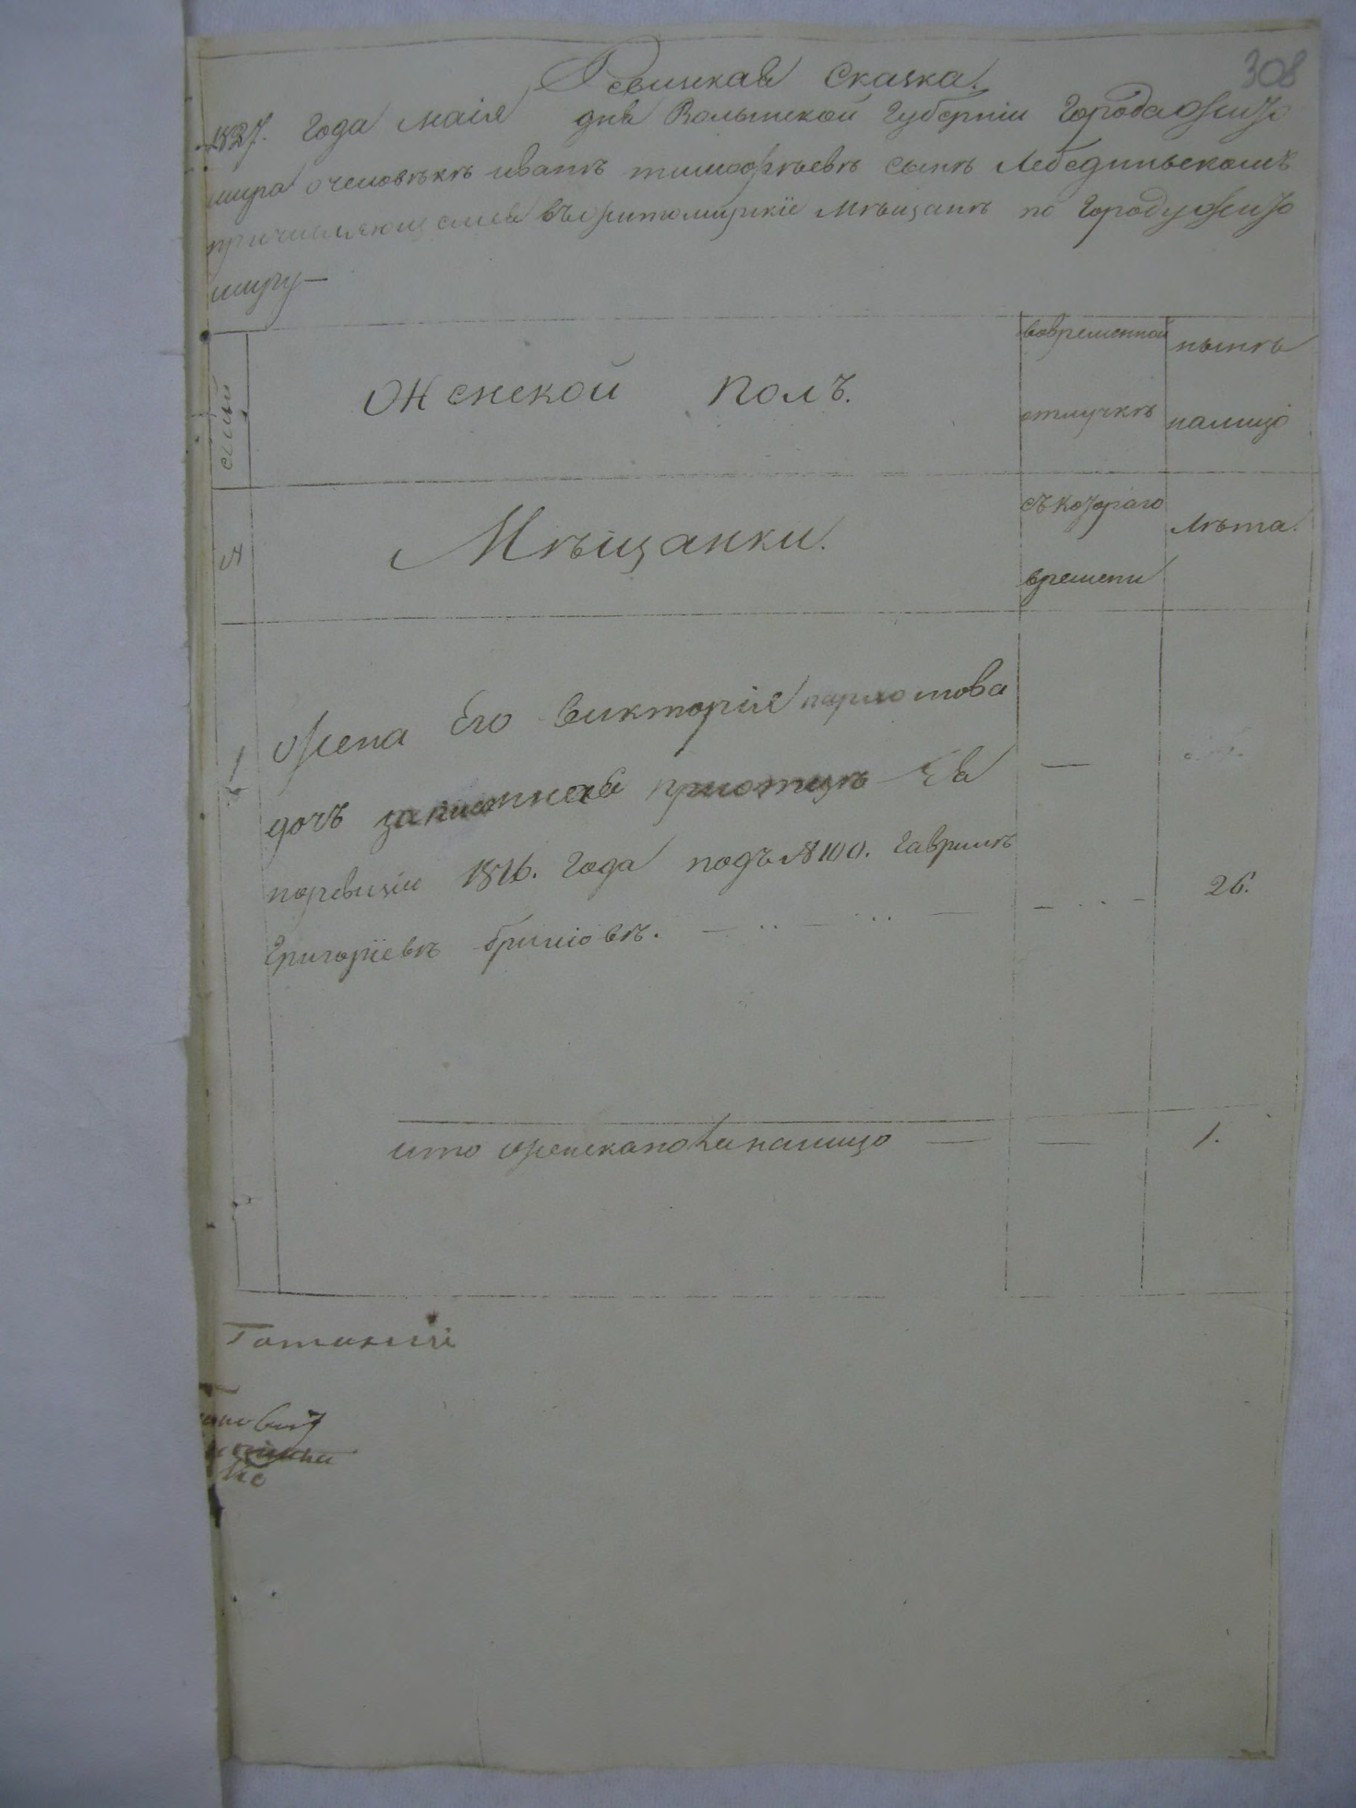 308
Ревизкая Сказка.
1827. Года Маія дня Волынской Губерніи Города Жито
мира о человѣкѣ иванѣ тимофѣевѣ сынѣ Лебединьскомъ
причисляющемся въ житомирскіе Мѣщанѣ по Городу Жито
миру —
семьи
вовременной
отлучкѣ
нынѣ
налицо
Женской Полъ.
№
Мѣщанки.
съ котораго
времени
Лѣта.
1
Жена Его викторія пархомова
дочъ записанная приотцѣ Ея — 
поревизіи 1816. Года подъ № 100. Гаврилѣ
Григоріевѣ — 26.
ито женска пола налицо — — 1.